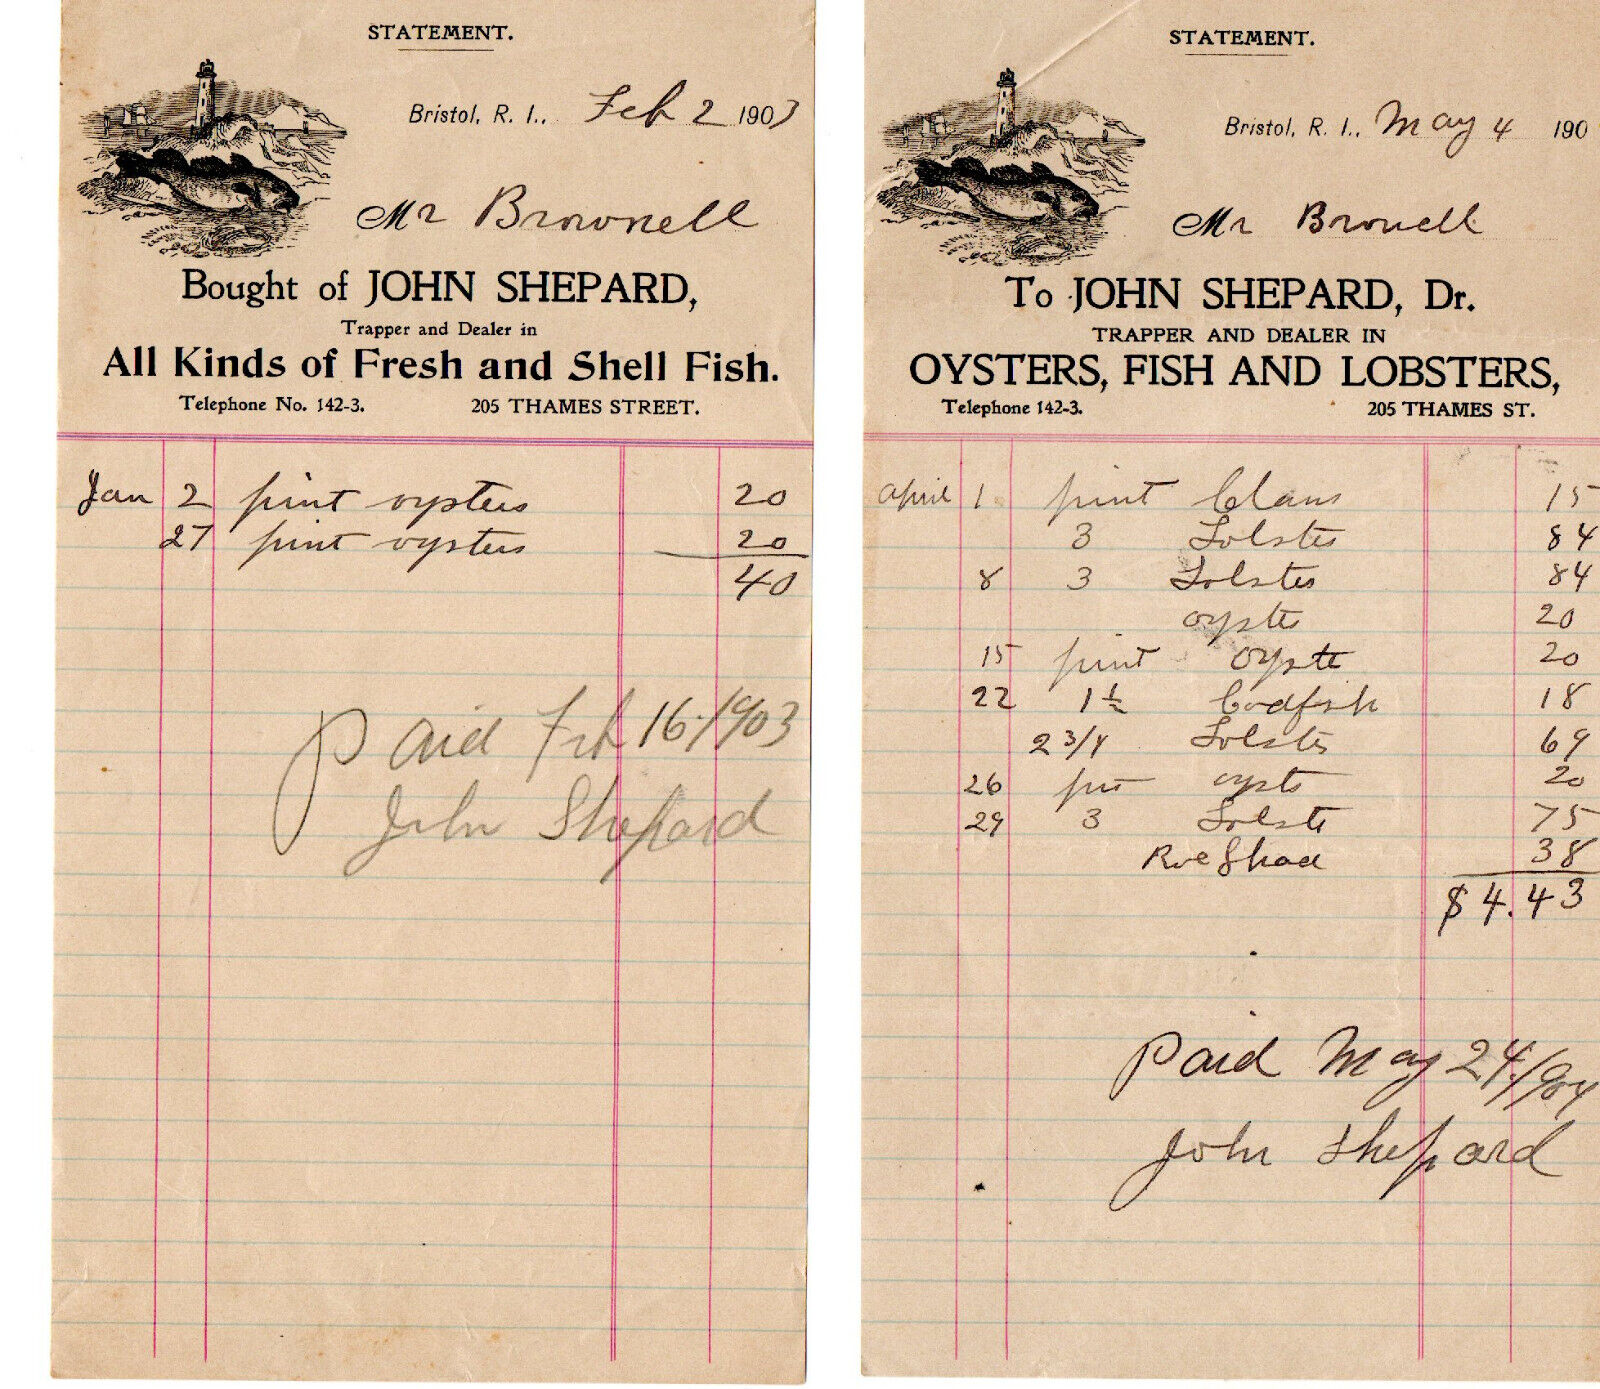 STATEMENT.
Bristol, R. I., Feb 2 1903
Mr Brownell
Bought of JOHN SHEPARD,
Trapper and Dealer in
All Kinds of Fresh and Shell Fish.
Telephone No. 142-3. 205 THAMES STREET.
Jan 2 pint oysters 20
27 pint oysters 20
40
Paid Feb 16-1903
John Shepard
STATEMENT.
Bristol, R. I., May 4 190
Mr Bronell
To JOHN SHEPARD, Dr.
TRAPPER AND DEALER IN
OYSTERS, FISH AND LOBSTERS,
Telephone 142-3. 205 THAMES ST.
April 1 pint Clams 15
3 Lobster 84
8 3 Lobster 84
oyster 20
15 pint oyste 20
22 1½ Codfish 18
2 3/4 Lobster 69
26 pin oyste 20
29 3 Lobste 75
Roe Shad 38
$4.43
Paid May 24/1904
John Shepard